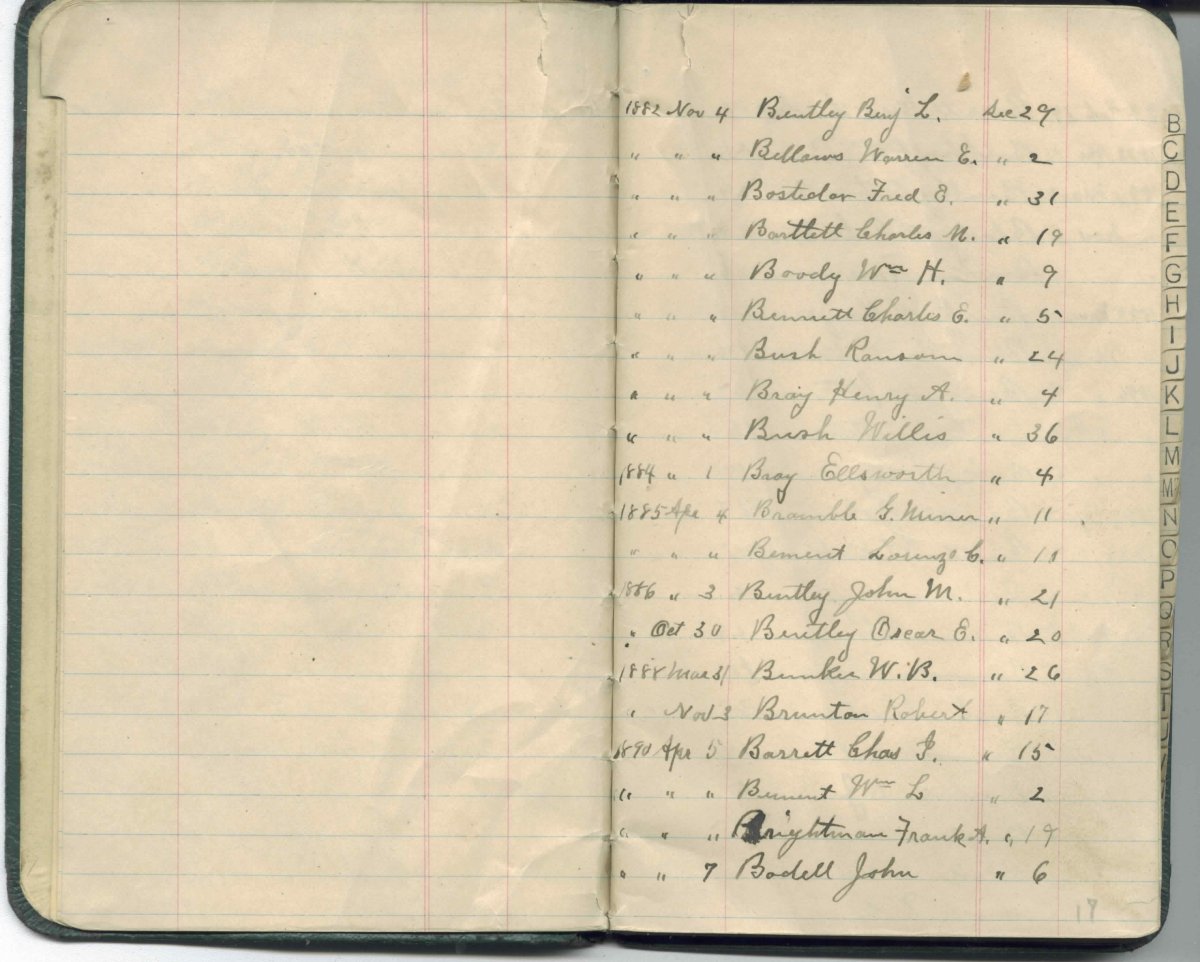 1882 Nov 4 Bentley Benj L. Sec 29
" " " Bellows Warren E. " 2
" " " Bostedor Fred E. " 31
" " " Bartlett Charles N. " 19
" " " Boody Wm H. " 9
" " " Bennett Charles E. " 5
" " " Bush Ransom " 24
" " " Bray Henry A. " 4
" " " Bush Willis " 36
1884 " 1 Bray Ellsworth " 4
1885 Apr 4 Bramble G. Miner " 11
" " " Bement Lorenzo C. " 11
1886 " 3 Bentley John M. " 21
" Oct 30 Bentley Oscar E. " 20
1888 Mar 31 Bunker W. B. " 26
" Nov 3 Brunton Robert " 17
1890 Apr 5 Barrett Chas I. " 15
" " " Bement Wm L " 2
" " " Brightman Frank A. " 19
" " 7 Bodell John " 6
B
C
D
E
F
G
H
I
J
K
L
M
Mc
N
O
P
Q
R
S
T